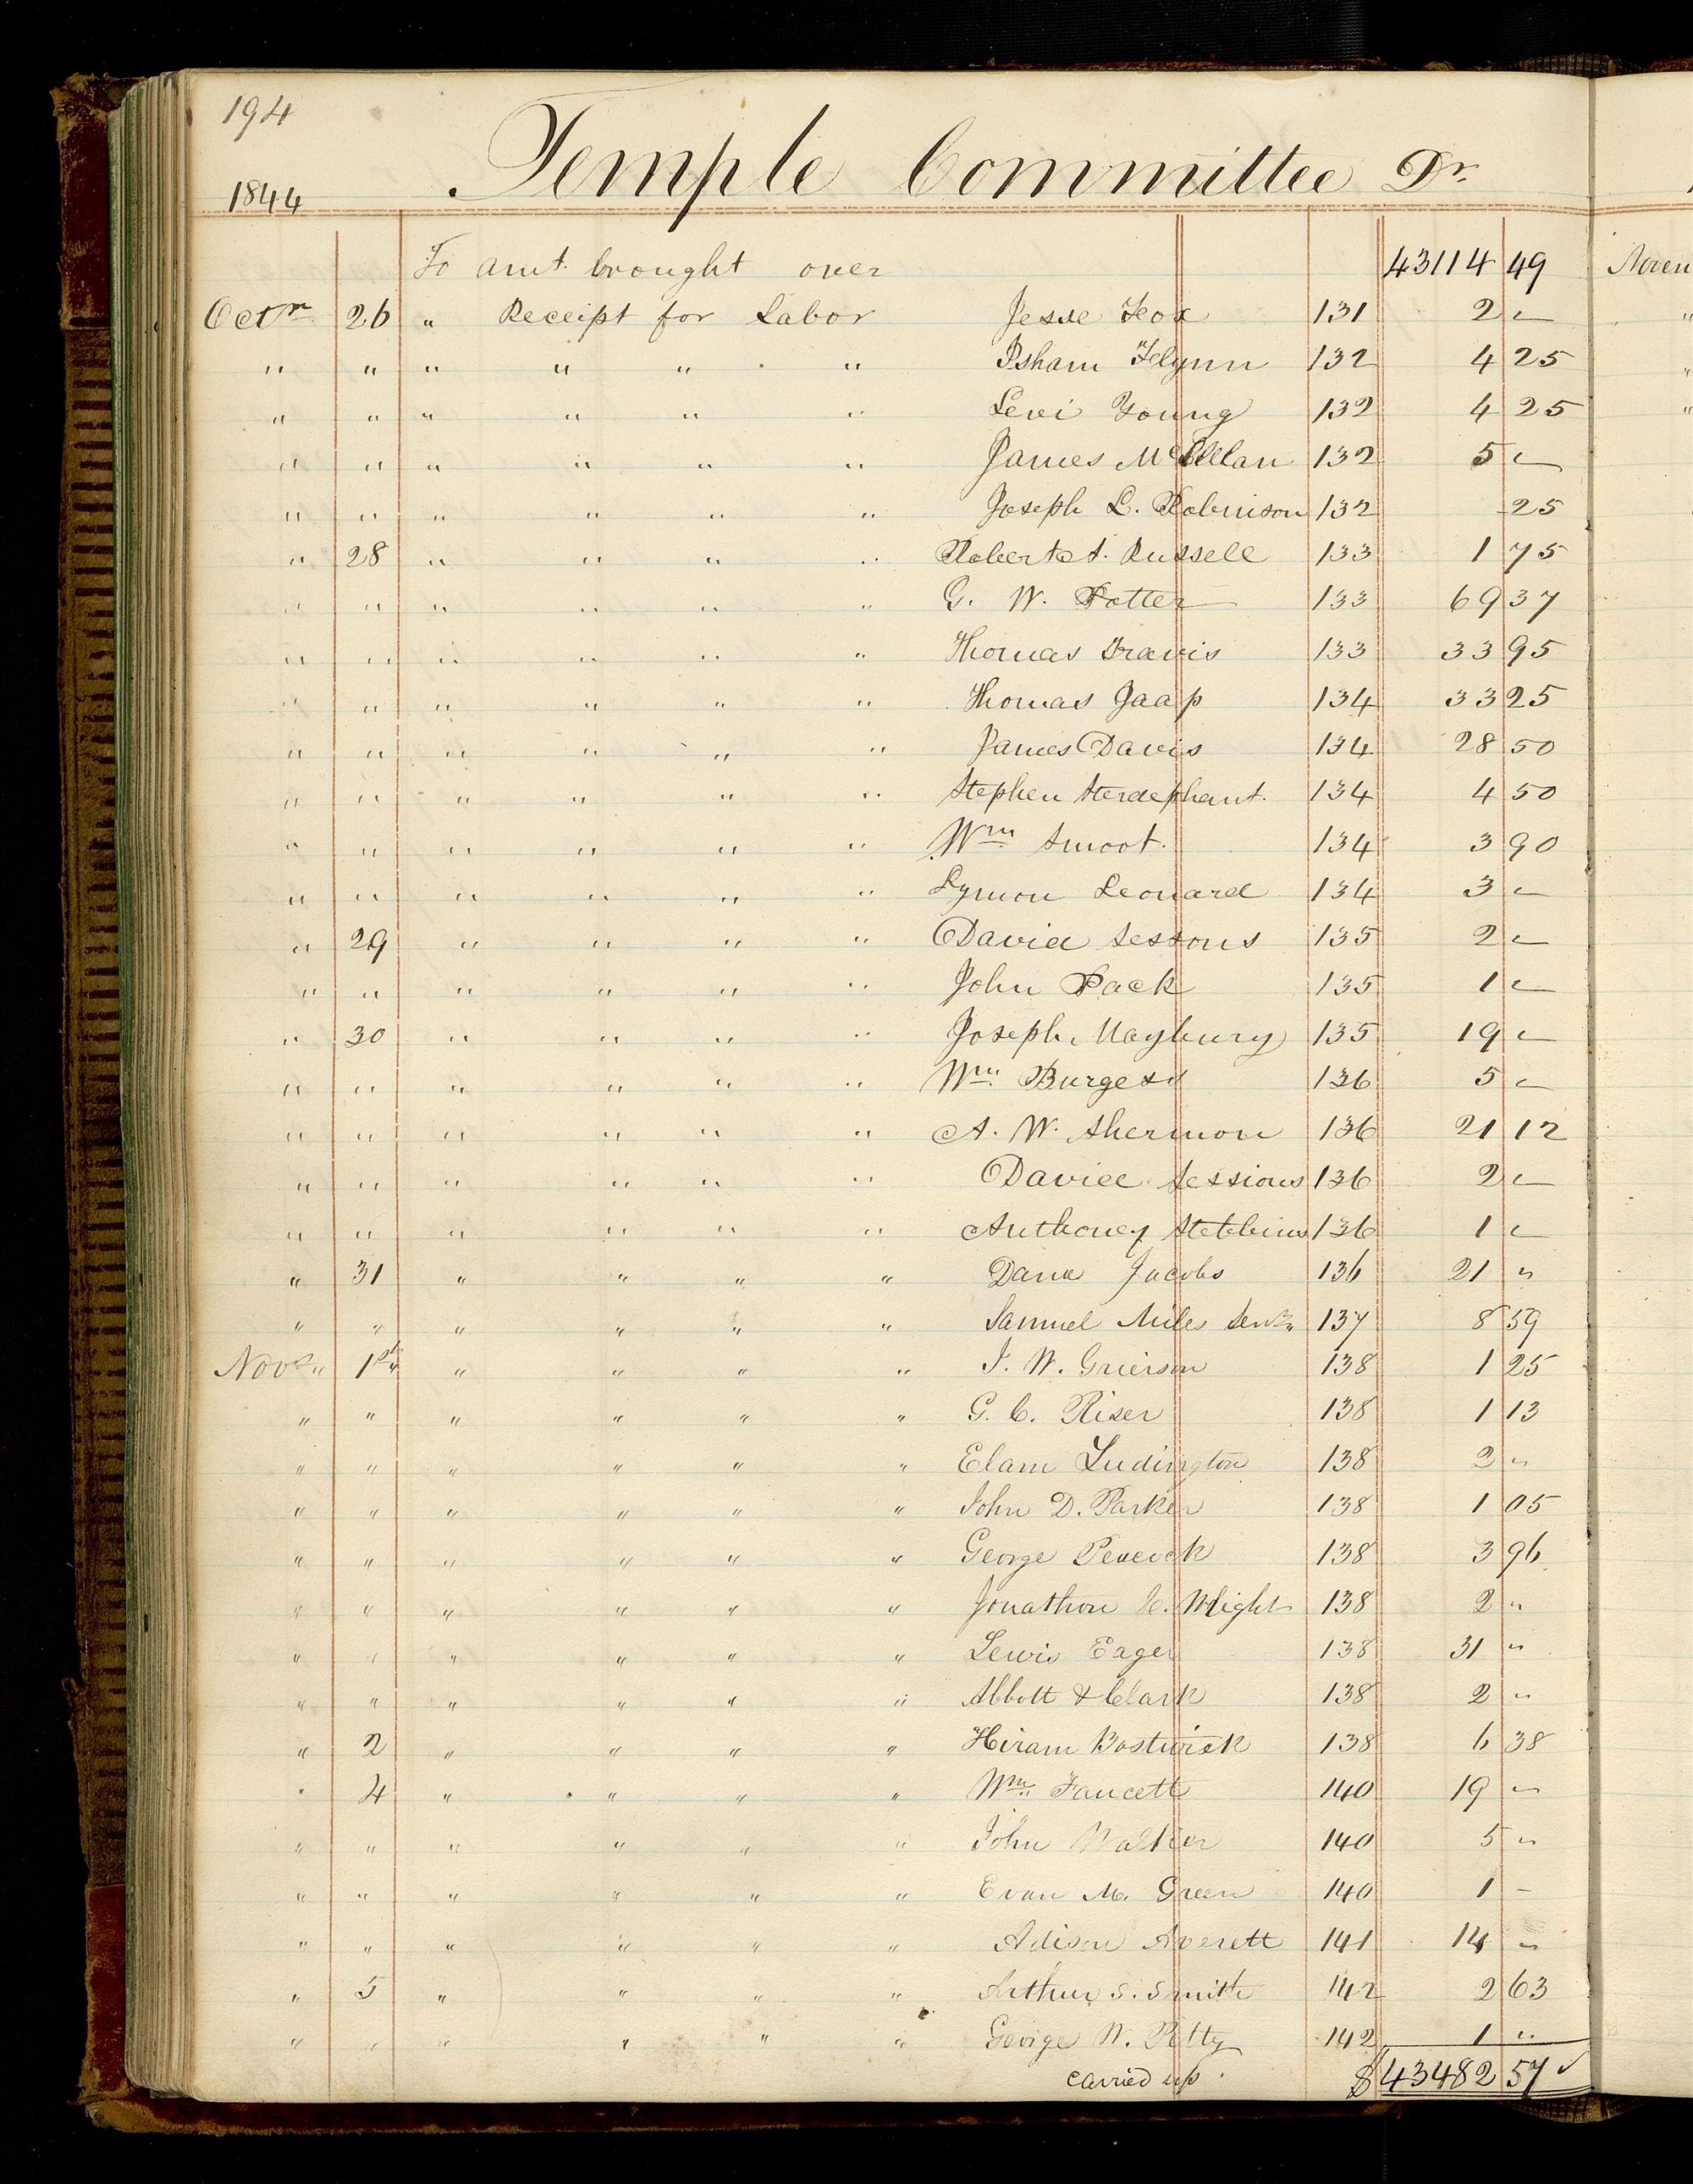 194
1844 Temple Committee Dr.
To amt. brought over 43114 49
Octr 26 " Receipt for Labor Jesse Fox 131 2 "
" " " " " " Isham Flynn 132 4 25
" " " " " " Levi Young 132 4 25
" " " " " " James McClellan 132 5 "
" " " " " " Joseph L. Robinson 132 25
" 28 " " " " Robert Russell 133 1 75
" " " " " " G. W. Potter 133 69 37
" " " " " " Thomas Travis 133 33 95
" " " " " " Thomas Jaap 134 33 25
" " " " " " James Davis 134 28 50
" " " " " " Stephen 134 4 50
" " " " " " Wm Smoot. 134 3 90
" " " " " " Lymon Leonard 134 3 "
" 29 " " " " David Sessons 135 2 "
" " " " " " John Pack 135 1 "
" 30 " " " " Joseph Maybury 135 19 "
" " " " " " Wm Burgess 136 5 "
" " " " " " A. W. Shermon 136 21 12
" " " " " " David Sessions 136 2 "
" " " " " " Anthoney Stebbins 136 1 "
" 31 " " " " Dana Jacobs 136 21 "
" " " " " " Samuel Miles Senr 137 8 59
Novr " 1st " " " " J. W. Grierson 138 1 25
" " " " " " G. C. Riser 138 1 13
" " " " " " Elam Ludington 138 2 "
" " " " " " John D. Parker 138 1 05
" " " " " " George Peacock 138 3 96
" " " " " " Jonathon C. Wright 138 2 "
" " " " " " Lewis Eager 138 31 "
" " " " " " Abbott & Clark 138 2 "
" 2 " " " " Hiram Bostwick 138 6 38
" 4 " " " " Wm Faucett 140 19 "
" " " " " " John Walker 140 5 "
" " " " " " Evan M. Green 140 1 -
" " " " " " Adison Averett 141 14 "
" 5 " " " " Arthur S. Smith 142 2 63
" " " " " " George W. Petty 142 1 "
carried up. $43482 57
Noven